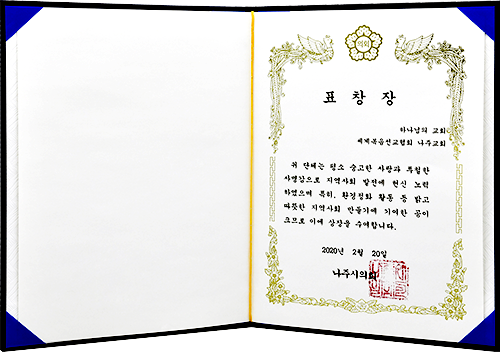 의회
표 창 장
하나님의 교회
세계복음선교협회 나주교회
귀 단체는 평소 숭고한 사랑과 투철한
사명감으로 지역사회 발전에 헌신 노력
하였으며 특히, 환경정화 활동 등 밝고
따뜻한 지역사회 만들기에 기여한 공이
크므로 이에 상장을 수여합니다.
2020년 2월 20일
나주시의회